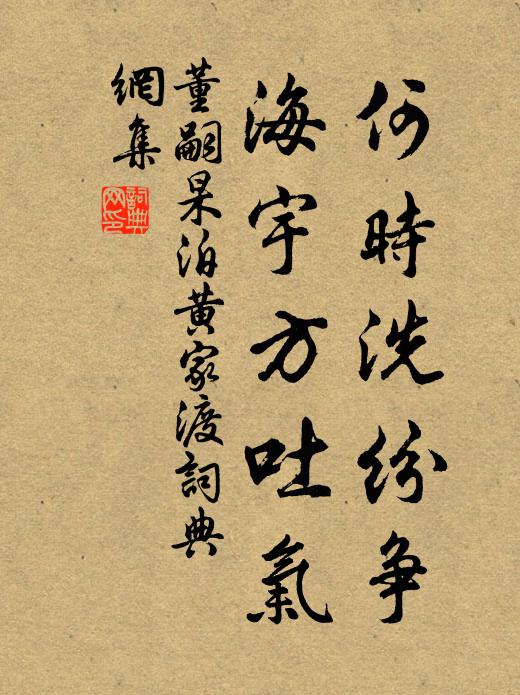 何時洗紛争
海宇方吐氣
董嗣杲泊黄家渡詞典
網集
詞典網印